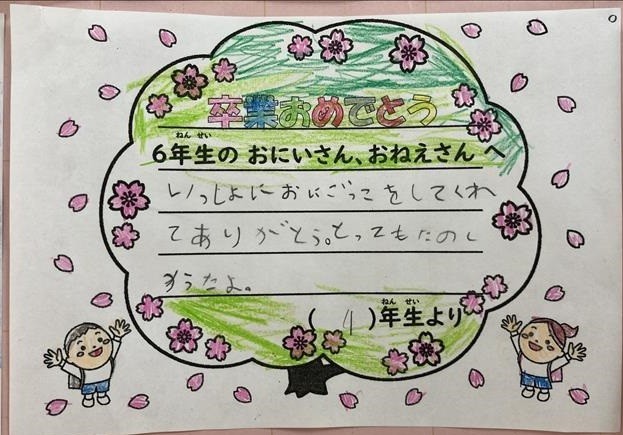 卒業おめでとう
ねん せい
6年生の おにいさん、おねえさん へ
いっしょにおにごっこをしてくれ
てありがとう。とってもたのし
かったよ。
ねん せい
( 4 )年生より